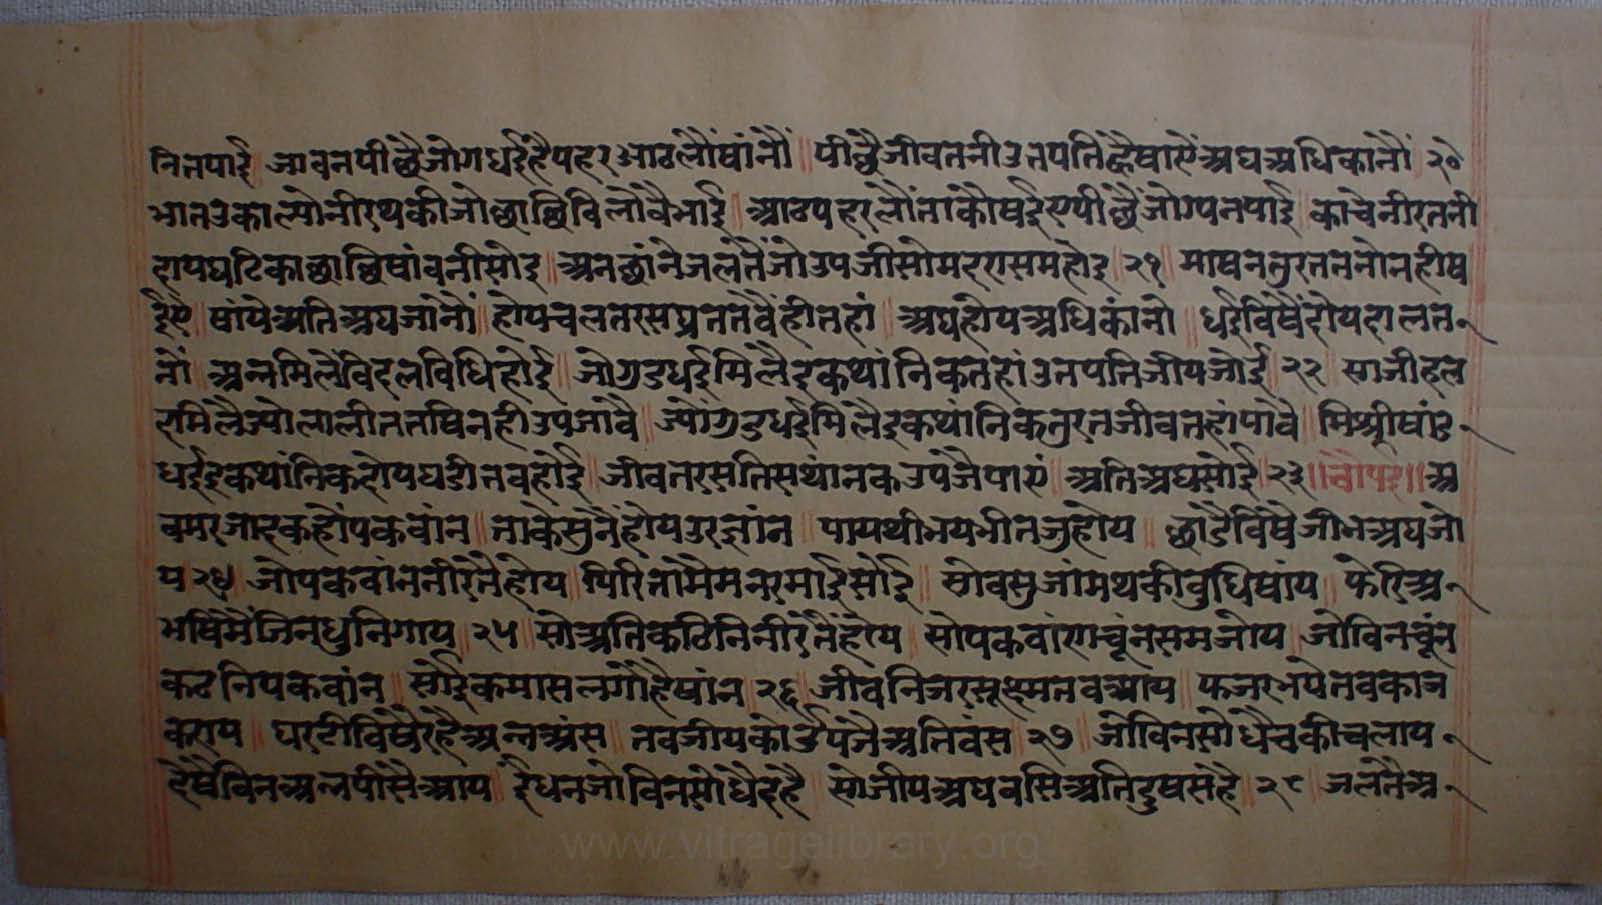 नितपाई ॥ जावनपीछैजोगधईहैपहरआठलौंषांनौं ॥ पीछैजीवतनीउतपतिह्वैषाऐंअघअधिकानौं २०
भातउकाल्योनीरथकीजोछाछिविलोंवैभाई ॥ आठपहरलौंताकौषईऐपीछैंजोग्पनपाई काचेनीरतनी
दोयघटिकाछाछिषांवनीसोइ ॥ अनछांनेजलतैंजोउपजींसोमदरासमहोइ २१ माषनतुरततननोनहीष
ईऐ ॥ षांयेअतिअघजांनौं ॥ होयचलतरसघ्रततवैंहीतहां ॥ अघहोयअधिकांनो ॥ धईविषैंदोयदालत
नों ॥ अन्नमिलेंविदलविधिहोई ॥ जोगुडधईमिलैइकथांनिकतहांउतपतिजीयजोई २२ साजीहल
दमिलैज्योलालीततषिनहीउपजावै ॥ ज्योंगुडधईमिलैइकथांनिकतुरतजीवतहांपावै ॥ मिश्रीषांड
धईइकथांनिकदोयघडीतवहोई ॥ जीवतरसतिसथांनकउपजैपाऐं ॥ अतिअघसोई २३ ॥ चौपई ॥ अ
वमरजादकहोंपकवांन ॥ ताकेसुनैंहोयउरज्ञांन ॥ पायथीभयभीतजुहोय ॥ छाडैविषैजीभअघजो
य २४ जोपकवांननीरतैहोय ॥ घिरितामैमनरमाईसोई ॥ सोवसुजांमथकीवुधिषांय ॥ फेरिअ
भषिमैंजिनधुनिगाय २५ सोअतिकठिनिनीरतैंहोय ॥ सोपकवांराचूंनसमजोय ॥ जोविनचूंन
कटनिपकवांन ॥ सोईकमासलगौहैषांन २६ जीवनिजरसूक्ष्मनवआय ॥ फजरभपेतवकाज
कराय ॥ घरटीविषैरहैअन्नअंस ॥ तवजीयकोईउपजैअतिवंस २७ जोविनसोधैचकीचलाय
देषैविनअन्नपीसैआय ॥ ईधनजोविनसोधैदहै ॥ सोजीयअघवसिअतिदुषसहै २८ जलतैअ
www.vitragelibrary.org